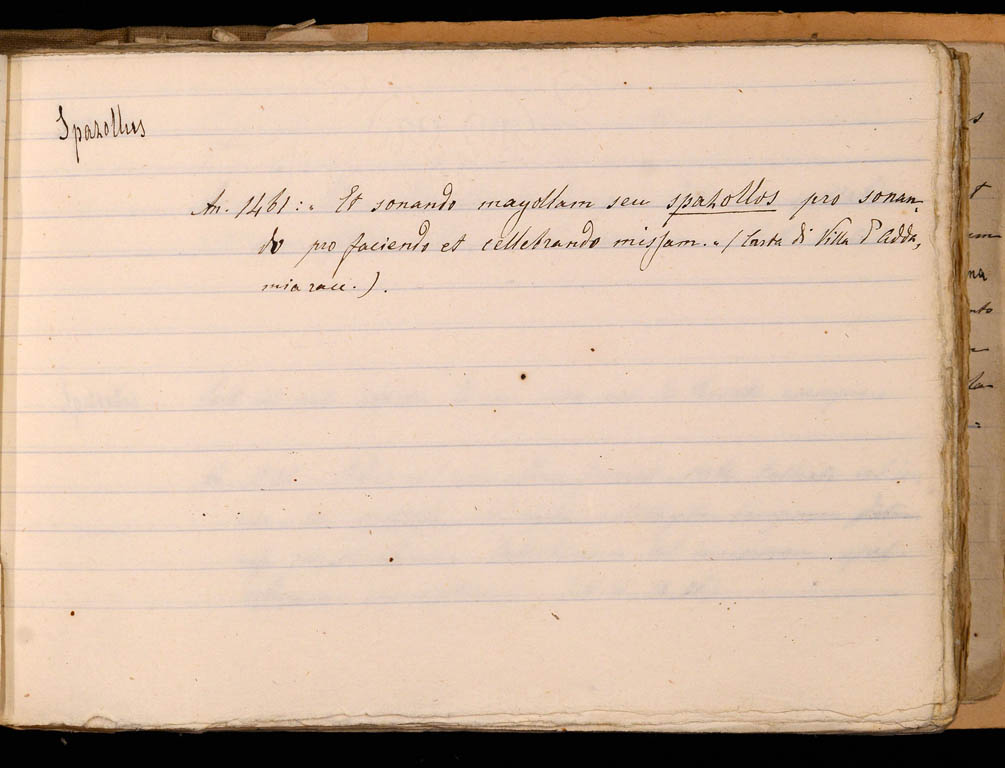 Spazollus
An. 1461: „ Et sonando mayollam seu spazollos pro sonan-
do pro faciendo et cellebrando missam. „ (Carta di Villa d'Adda,
mia racc.).